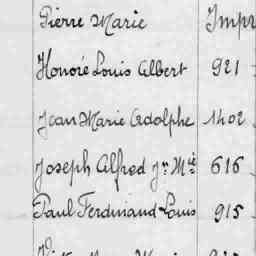 Pierre Marie Impr
Honoré Louis Albert 921
Jean Marie Adolphe 1402
Joseph Alfred Jn Mie 616
Paul Ferdinand Louis 915